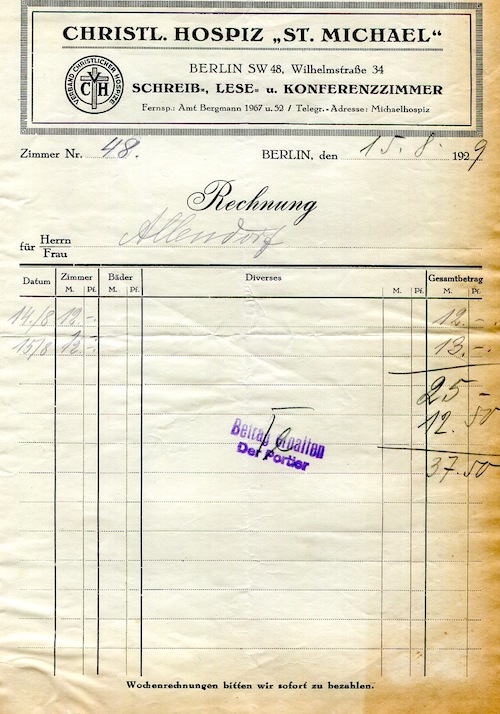 CHRISTL. HOSPIZ „ST. MICHAEL“
VERBAND CHRISTLICHER HOSPIZE
C V H
BERLIN SW 48, Wilhelmstraße 34
SCHREIB-, LESE- u. KONFERENZZIMMER
Fernsp.: Amt Bergmann 1967 u. 52 / Telegr.-Adresse: Michaelhospiz
Zimmer Nr. 48. BERLIN, den 15. 8. 1929
Rechnung
für Herrn Frau Allendorf
Datum Zimmer M. Pf. Bäder M. Pf. Diverses M. Pf. Gesamtbetrag M. Pf.
14./8 12.-. 12.-.
15/8 13.-.
25 -
12.50
37.50
Betrag erhalten
Der Portier
Wochenrechnungen bitten wir sofort zu bezahlen.